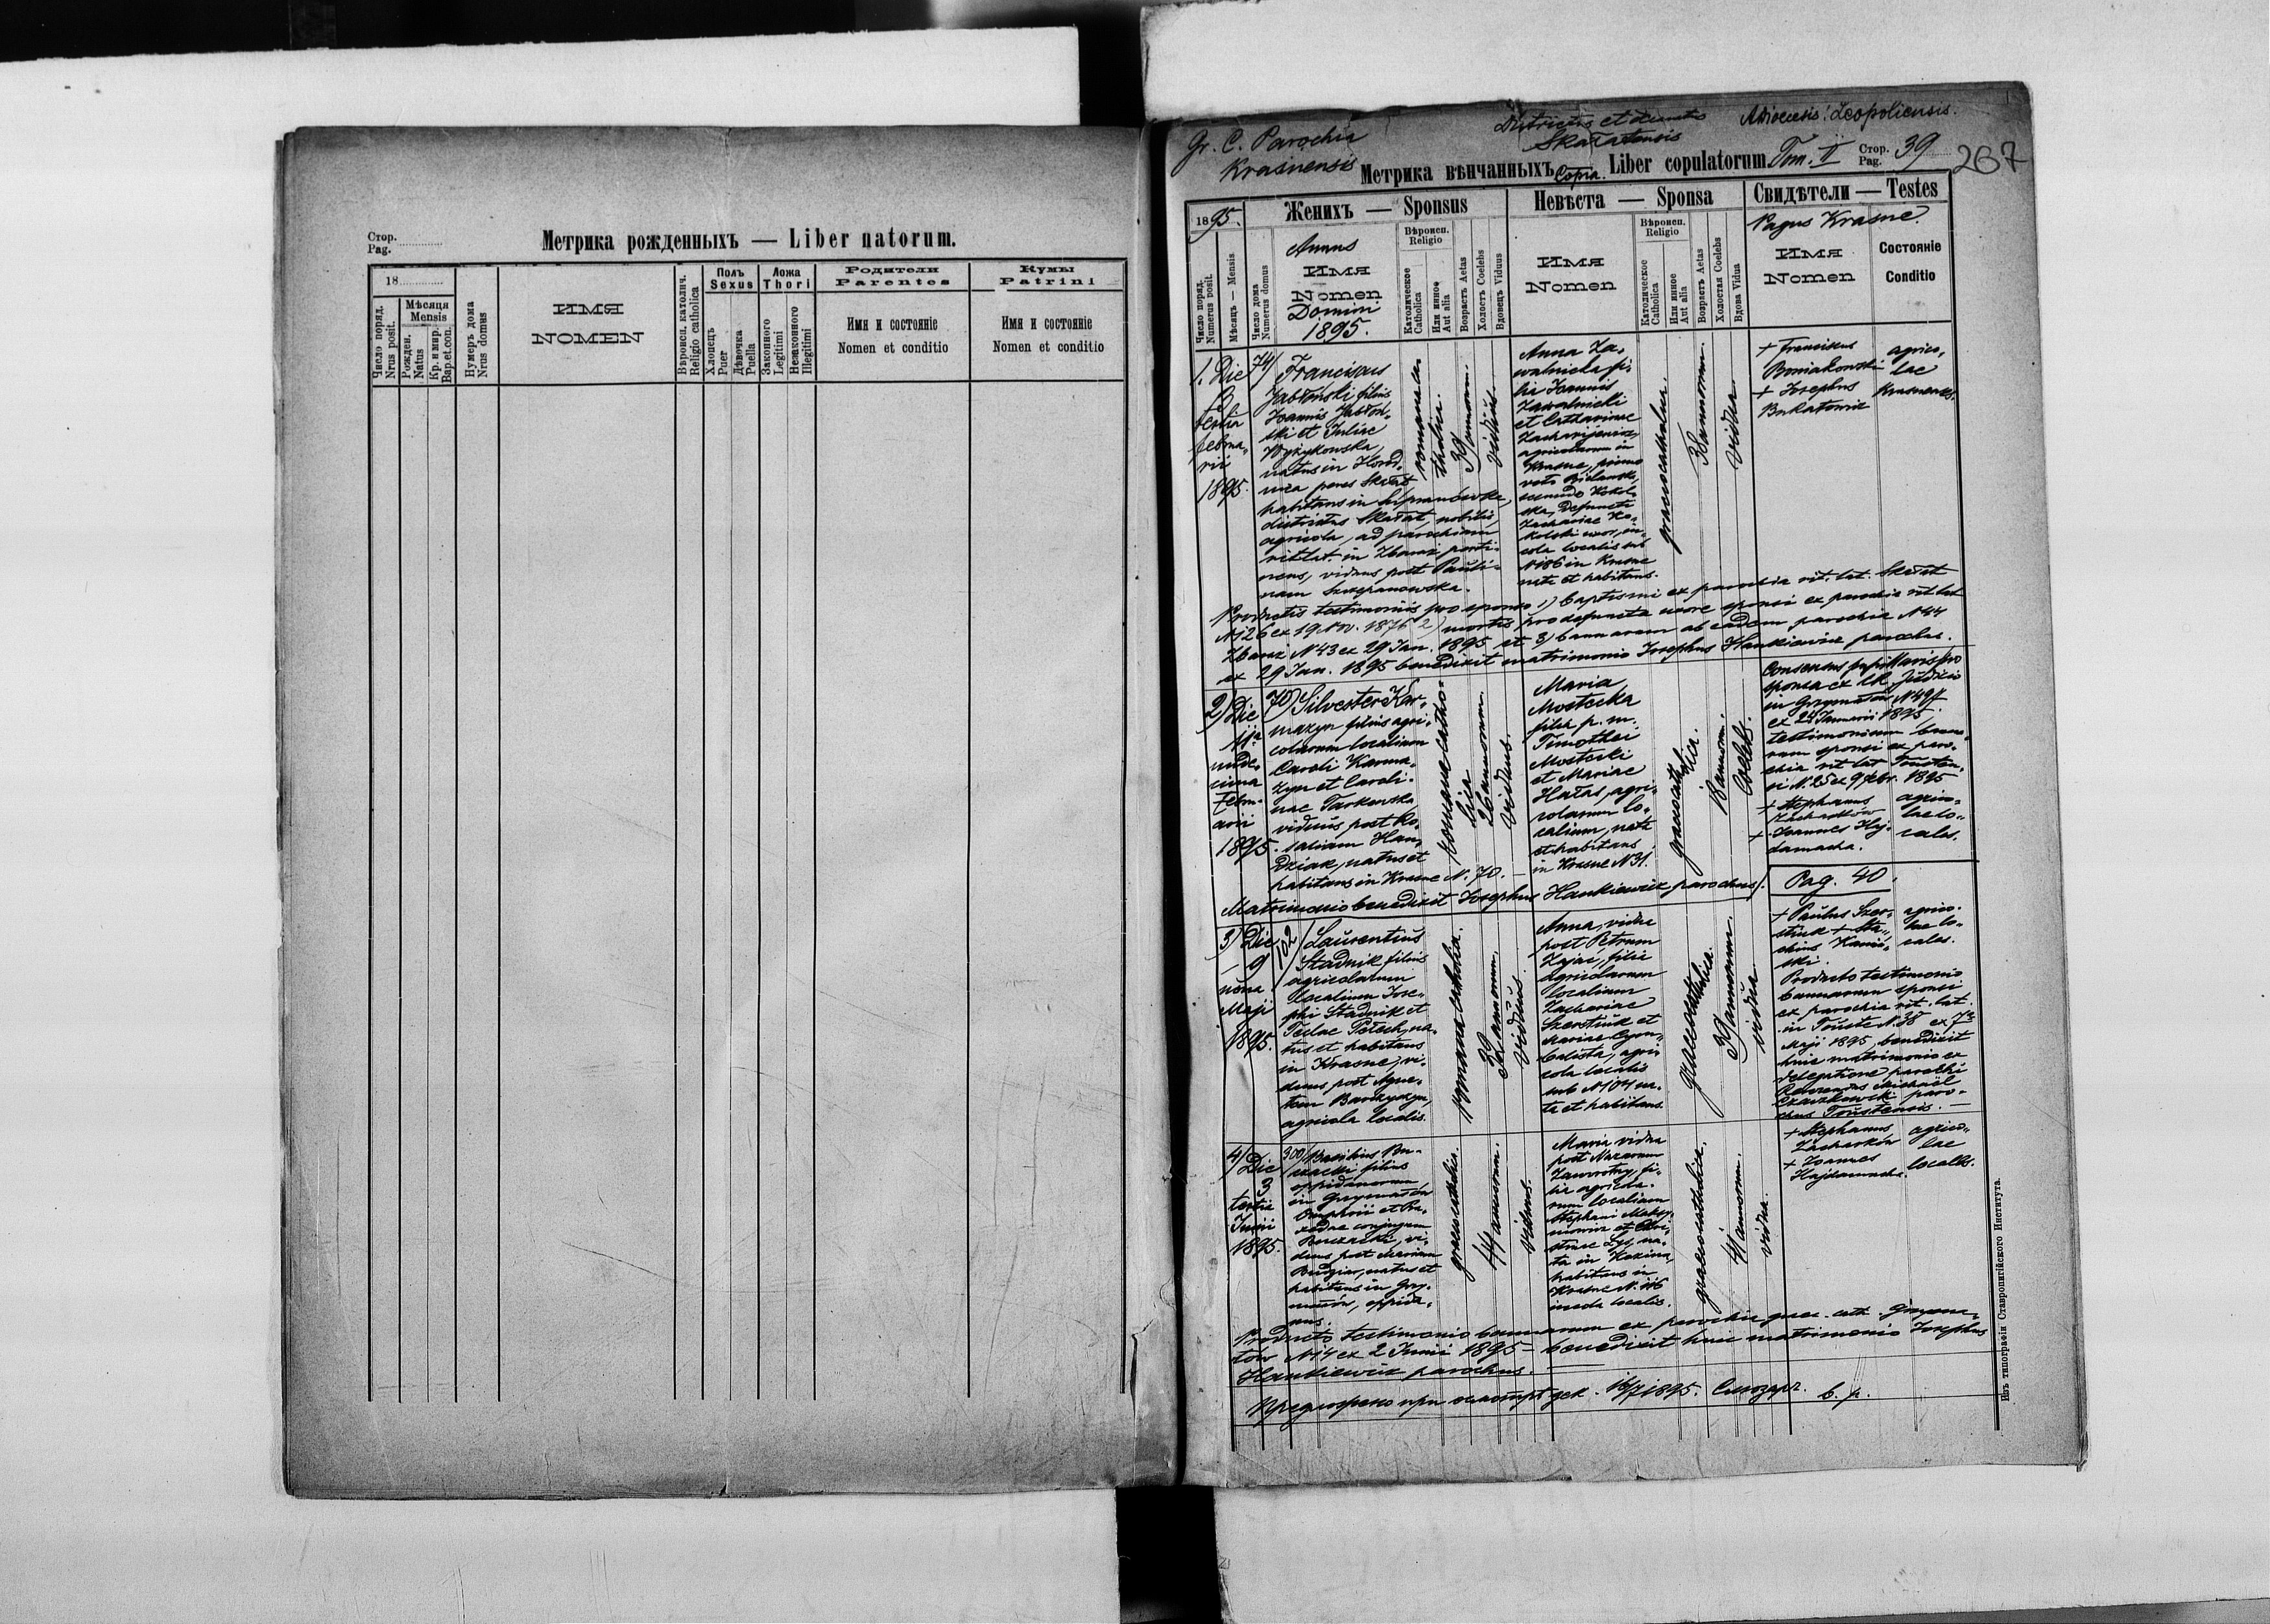 Стор.
Pag.
Метрика рожденныхъ — Liber natorum.
18
Число поряд.
Nrus posit.
Мѣсяця
Mensis
Рожден.
Natus
Кр. и мир.
Bap.et.con.
Нумеръ дома
Nrus domus
ИМЯ
NOMEN
Вѣроисп. католич.
Religio catholica
Полъ
Sexus
Хлопецъ
Puer
Дѣвочка
Puella
Ложа
Thori
Законного
Legitimi
Незаконного
Illegitimi
Родители
Parentes
Имя и состоянiе
Nomen et conditio
Кумы
Patrini
Имя и состоянiе
Nomen et conditio
Gr. C. Parochia
Krasnensis
Districtus et
Skałatensis
Leopoliensis.
Метрика вѣнчанныхъ Copia. Liber copulatorum. Tom. II Стор.
Pag. 39
267
1895.
Женихъ — Sponsus
Невѣста — Sponsa
Свидѣтели — Testes
Pagus Krasne.
Число поряд.
Numerus posit.
Мѣсяць — Mensis
Число дома
Numerus domus
Annus
ИМЯ
Nomen
Domini
1895.
Вѣроисп.
Religio
Католическое
Catholica
Или иное
Aut alia
Возрастъ Aetas
Холостъ Coelebs
Вдовець Viduus
ИМЯ
Nomen
Вѣроисп.
Religio
Католическое
Catholica
Или иное
Aut alia
Возрастъ Aetas
Холостая Coelebs
Вдова Vidua
ИМЯ
Nomen
Состоянiе
Conditio
1. Die
3
tertia
februa-
rii
1895.
74)
Franciscus
Jabłoński filius
Joannis Jabłoń-
ski et Juliae
Wyżykowska,
natus in Horod-
nica penes Skałat,
habitans in
districtus Skałat, nobilis,
agricola, ad parochiam
rit. lat. in Zbaraż perti-
nens, viduus post Pauli-
nam Szczepanowska.
romana ca-
tholica.
39 annorum.
viduus.
Anna Za-
walnicka fi-
lia Joannis
Zawalnicki
et Catharinae
agricolarum in
Krasne, primo
voto
secundo Kokol-
ska, defuncti
Zachariae Ko-
kolski uxor, in-
cola localis sub
N 186 in Krasne
nata et habitans.
graecocatholica.
38 annorum.
vidua
+ Franciscus
+ Josephus
agrico-
lae
Krasnenses.
Productis testimoniis pro sponso 1) baptismi ex parochia rit. lat. Skałat
N 126 ex 19 Nov. 1876 2) mortis pro defuncta uxore sponsi ex parochia rit lat
Zbaraż N 43 ex 29 Jan. 1895 et 3) bannorum ab eadem parochia N 44
ex 29 Jan. 1895 benedixit matrimonio Josephus Hankiewicz parochus.
2) Die
11
unde-
cima
Febru-
arii
1895.
70)
Silvester Kar-
mazyn filius agri-
colarum localium
Caroli Karma-
zyn et Caroli-
nae Tarkowska,
viduus post Ro-
saliam Han-
dziak, natus et
habitans in Krasne N. 70. —
romano catho-
lica
26 annorum.
viduus.
Maria
Mostecka
filia p. m.
Timothei
Mostecki
et Mariae
Hałas, agri-
colarum lo-
calium, nata
et habitans
in Krasne N 31.
graecocatho-
lica.
18 annorum.
Coelebs.
Consensus pupillaris pro
sponsa ex CR. Judicio
in Grzymałów N 497
ex 24 Januarii 1895,
testimonium banno-
rum sponsi ex paro-
chia rit lat Touste
N. 25 ex 9 febr. 1895
+ Stephanus
Zacharków
+ Joannes Haj-
damacha.
agrico-
lae lo-
cales.
Matrimonio benedixit Josephus Hankiewicz parochus).
Pag. 40.
3) Die
9
nona
Maji
1895.
102)
Laurentius
Stadnik filius
agricolarum
localium Jose-
phi Stadnik et
Teclae Petech, na-
tus et habitans
in Krasne, vi-
duus post Agne-
tem
agricola localis.
romana catholica.
39 annorum.
viduus.
Anna, vidua
post Petrum
Zając, filia
agricolarum
localium
Zachariae
Szerstiuk et
Mariae Cym-
balista, agri-
cola localis
sub N 104 na-
ta et habitans.
graecocatholica.
39 annorum.
vidua.
+ Paulus Szer-
stiuk + Sta-
chius Kamiń-
ski.
agrico-
lae lo-
cales.
Producto testimonio
bannorum sponsi
ex parochia rit. lat.
in Touste N. 38 ex 7
Maji 1895, benedixit
huic matrimonio ex
delegatione parochi
Reverendus Michaël
paro-
chus Toustensis. —
4) Die
3
tertia
Junii
1895.
300)
Basilius Bu-
czacki filius
oppidanorum
in Grzymałów
Onuphrii et Pa-
conjugum
Buczacki, vi-
duus post Mariam
natus et
habitans in Grzy-
małów, oppida-
nus.
graecocatholica.
44 annorum.
viduus.
Maria vidua
post Nazarium
Zawrotny fi-
lia agricola-
rum localium
Stephani Maksy-
mowicz et Chri-
stinae Lys, na-
ta in Kozina,
habitans in
Krasne N. 116
incola localis.
graecocatholica.
41 annorum.
vidua.
+ Stephanus
Zacharków
+ Joannes
Hajdamacha.
agrico-
lae
locales.
Producto testimonio bannorum ex parochia graec. cath. Grzyma-
łów N 14 ex 2 Junii 1895 — benedixit huic matrimonio Josephus
Hankiewicz parochus.
16/7 1895.
Изъ типографiи Ставропигiйского Института.